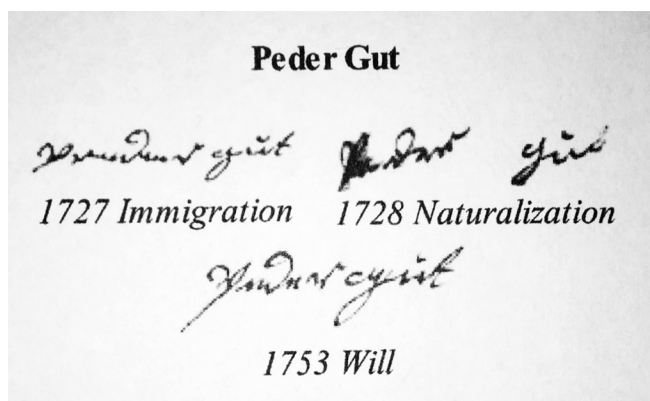 Peder Gut
Peder gut Peder gut
1727 Immigration 1728 Naturalization
Peder gut
1753 Will